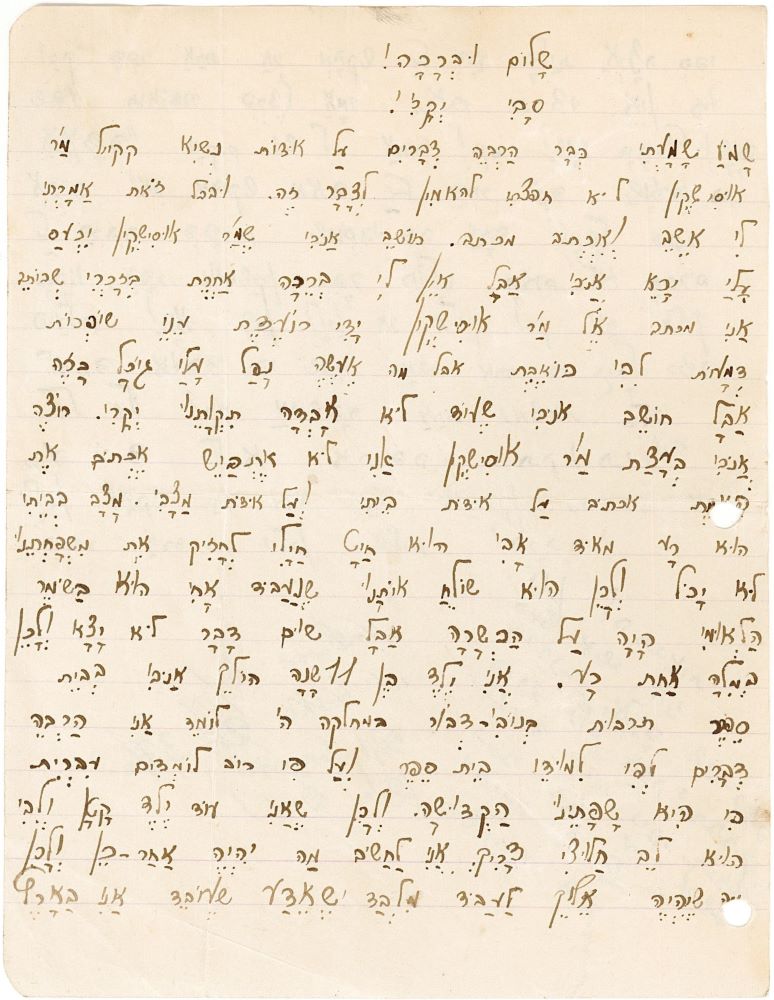 שָׁלוֹם וּבְרָכָה!
סָבִי יְקָרִי!
שָׁמֹעַ שָׁמַעְתִּי כְּבָר הַרְבֵּה דְּבָרִים עַל אֹידוֹת נְשִׂיא קק״ל מַר
אוּסִישְׁקִין לֹא חפצתי להַאֲמִין לְדָבָר זֶה. וּבכל זֹאת אָמַרְתִּי
לִי אֵשֵׁב וְאֶכְתֹּב מכתב. חוֹשֵׁב אָנֹכִי שֶׁמַּר אוּסִישְׁקִין יִכְעַס
עָלַי יָרֵא אָנֹכִי אֲבָל אֵין לִי בְּרֵרָה אַחֶרֶת בְּזָכְרִי שכותב
אֲנִי מכתב אֶל מַר אוּסִישְׁקִין יָדִי רוֹעֶדֶת עֵינַי שׁוֹפְכוֹת
דְּמָעוֹת לִבִּי כּוֹאֶבֶת אבל מה אֶעֱשֶׂה נָפַל עָלַי גוֹרָל כָּזֶה
אֲבָל חוֹשֵׁב אָנֹכִי שֶׁעוֹד לֹא אָבְדָה תִּקְוָתֵנוּ יְקָרִי. רוֹצֶה
אָנֹכִי בְּעֵצַת מַר אוּסִישְׁקִין אֲנִי לֹא אֶתְבַּיֵּשׁ אֶכְתֹּב אֶת
הָאֱמֶת אכתוב עַל אֹידוֹת בֵּיתִי וְעַל אֹידוֹת מַצָּבִי. מַצָּב בְּבֵיתִי
הוּא רַע מאֹד אָבִי הוּא חַיָּט לְחַזִּיק אֶת מִשְׁפַּחְתֵּנוּ
לֹא יָכֹל וְלָכֵן הוּא שׁוֹלֵחַ אוֹתָנוּ שֶׁנַּעֲבֹיד אָחִי הוּא בַּשּׁוֹמֵר
הַלְּאוּמִי הָיָה עַל הַכְשָׁרָה אֲבָל שׁוּם דָּבָר לֹא יָצָא וְלָכֵן
בְּמִלָּה אַחַת רָע. אֲנִי יֶלֶד בֶּן 11 שָׁנָה הוֹלֵךְ אָנֹכִי בְּבֵית
סֵפֶר תרבות בְּנוֹבִי־דבוֹר במחלקה ה' לוֹמֵד אֲנִי הַרְבֵּה
דְּבָרִים לְפִי לִמּוּדוֹ בֵּית סֵפֶר וְעַל פי רוֹב לוֹמְדִים עִבְרִית
כִּי הִיא שְׂפָתֵינוּ הַקְּדוֹשָׁה. וְלָכֵן שֶׁאֲנִי עוֹד יֶלֶד קָטָן וְלִבִּי
הוּא לֵב חֲלוּצִי צָרִיךְ אֲנִי לַחְשֹׁב מַה יִּהְיֶה אַחַר־כֵּן וְלָכֵן
מה שֶׁיִּהְיֶה אֵלֵךְ לַעֲבֹיד מִלְּבַד שֶׁאֵדַע שֶׁעוֹבֵד אֲנִי בָּאָרֶץ